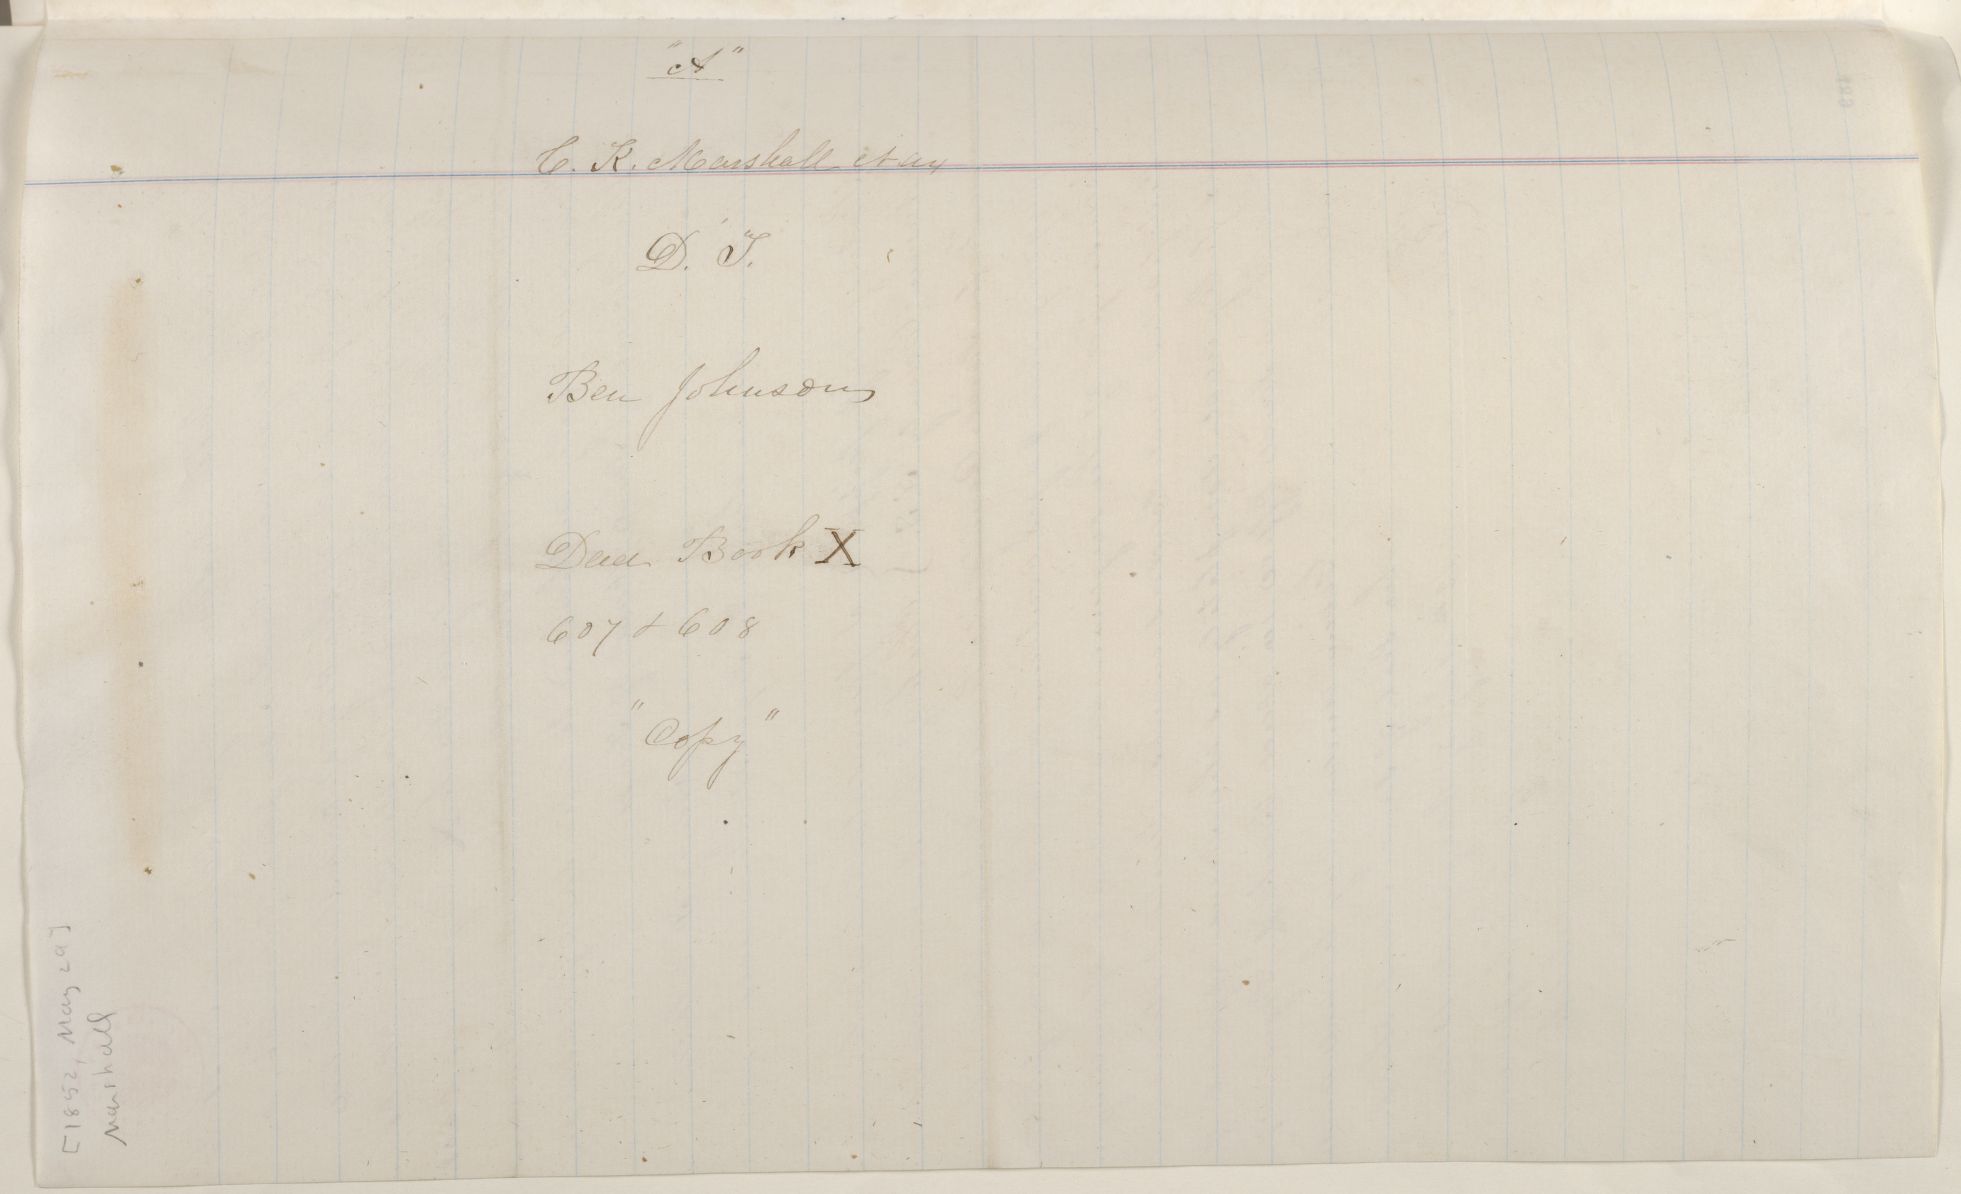 "A"
C. K. Marshall et ux
D. T.
Ben Johnson
Deed Book X
607 & 608
"Copy"
[1852, May 29]
Marshall